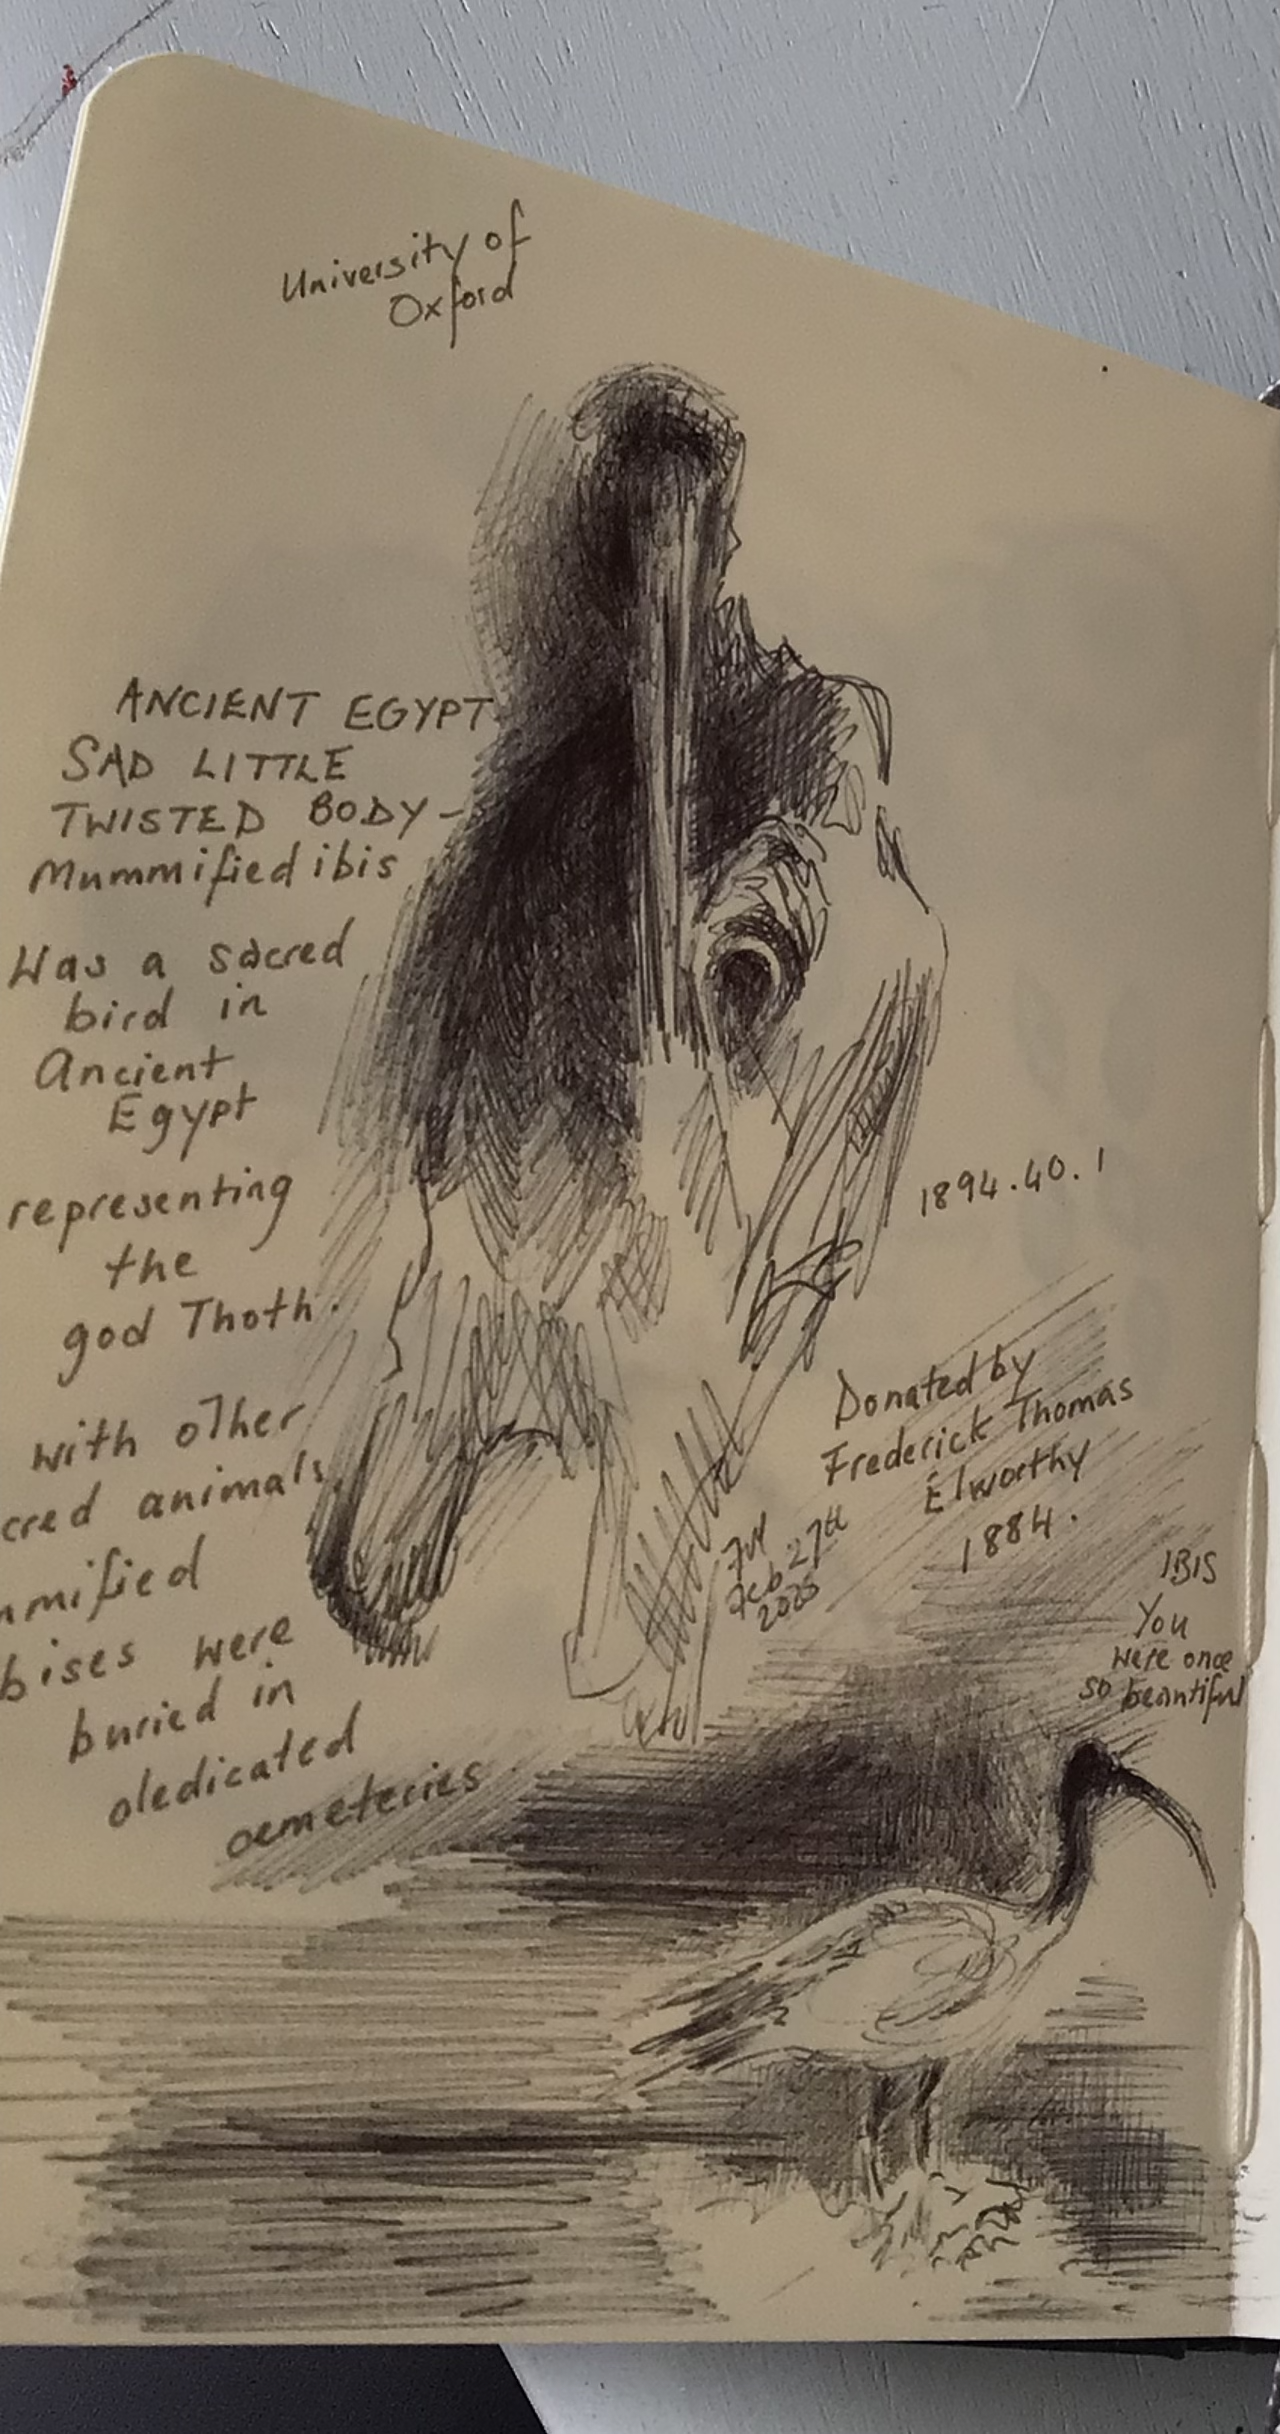 University of
Oxford
ANCIENT EGYPT
SAD LITTLE
TWISTED BODY –
Mummified ibis
Was a sacred
bird in
Ancient
Egypt
representing
the
god Thoth.
with other
cred animals,
mmified
bises were
buried in
dedicated
cemeteries
1894.40.1
Donated by
Frederick Thomas
Elworthy
1884.
Feb 27th
IBIS
You
were once
so beautiful